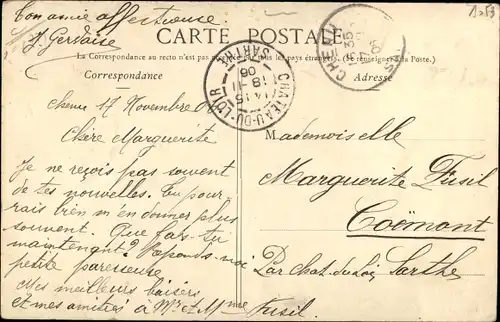 Ton amie affectueuse
J. Gervaise
CARTE POSTALE
La Correspondance au recto n'est pas
tous les pays étrangers. (Se renseigner à la Poste)
Correspondance
Adresse
CHATEAU-DU-LOIR
SARTHE
14 15
18 - 11
06
Chenu 17 Novembre 06
Chère Marguerite
Je ne reçois pas souvent
de tes nouvelles. Tu pour-
rais bien m'en donner plus
souvent. Que fais-tu
maintenant? Réponds-moi
petite paresseuse
Mes meilleurs baisers
et mes amitiés à Mr et Mme Fusil.
Mademoiselle
Marguerite Fusil
Coëmont
Par Chat. du Loir Sarthe